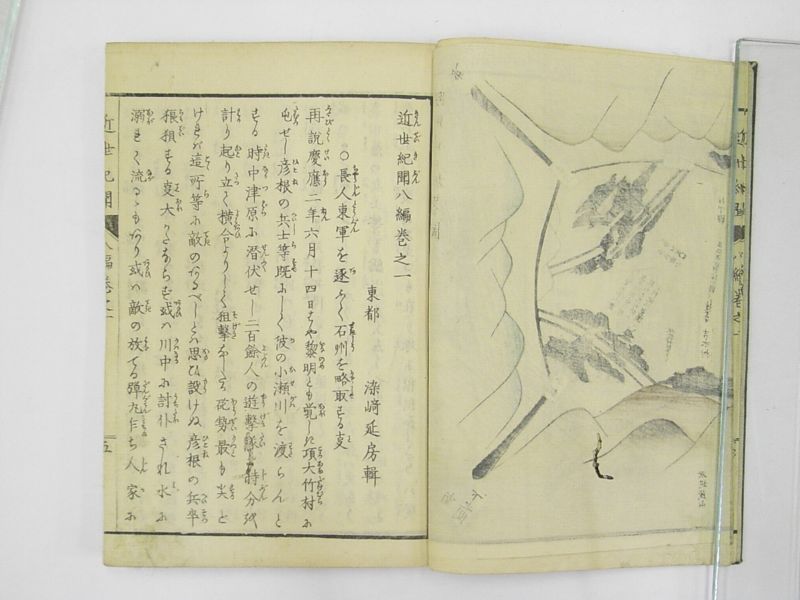 近世紀聞八編巻之一
東都 染﨑延房輯
○長人東軍を逐ふて石州を略取する支
再説慶應二年六月十四日はや黎明とも覚しき頃大竹村に
屯せし彦根の兵士等既にして彼の小瀬川を渡らんと
する時中津原に潜伏せし二百餘人の遊撃隊時分は
計り起り立て横合よりして狙撃なしたる砲勢最も尖ど
けれバ這所等に敵のあるべしとハ思ひ設けぬ彦根の兵卒
狼狽する支大かたならず或ハ川中に討仆され水に
溺れて流るゝもあり或ハ敵の放てる弾丸乍ち人家に
近世紀聞
八編巻之一
五